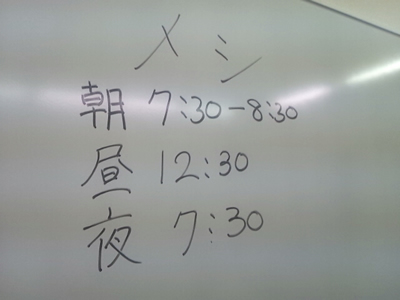 メシ
朝 7:30-8:30
昼 12:30
夜 7:30